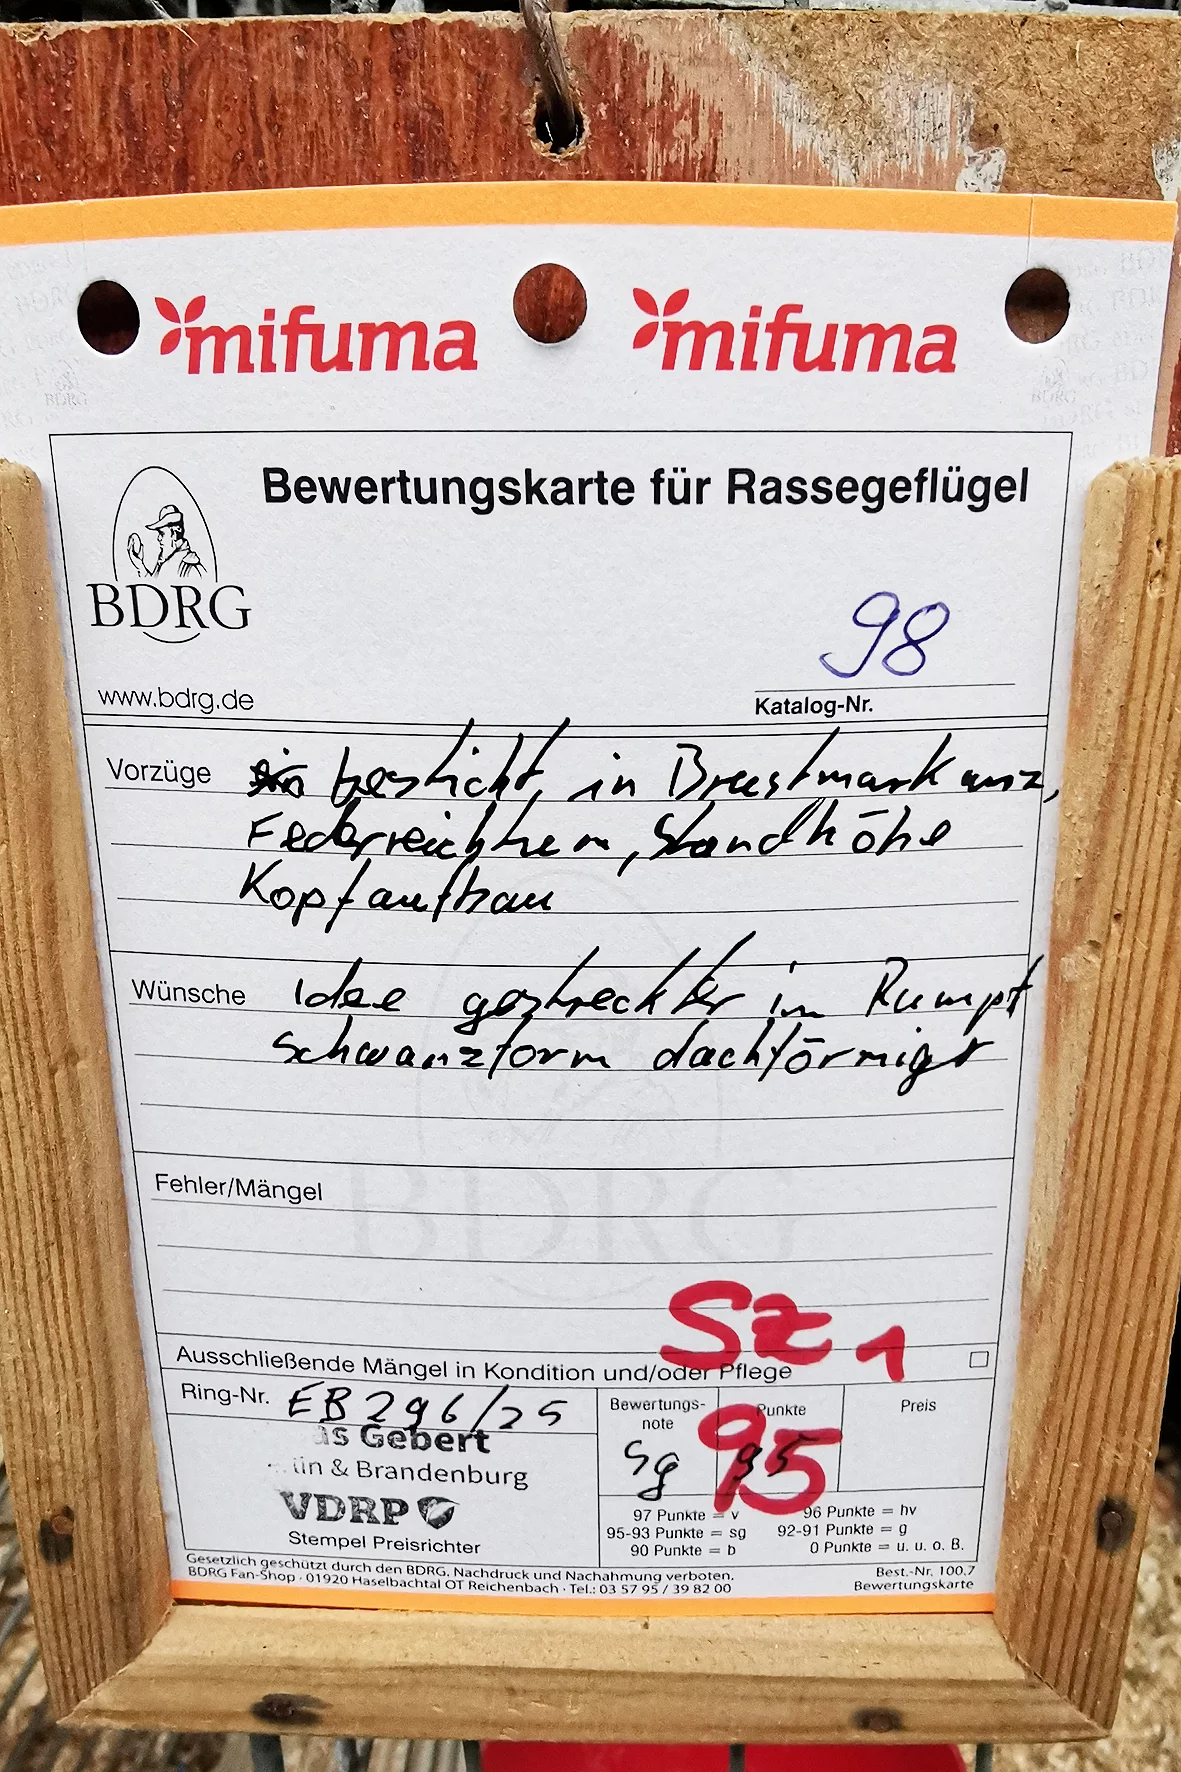 mifuma mifuma
Bewertungskarte für Rassegeflügel
BDRG
98
www.bdrg.de
Katalog-Nr.
Vorzüge besticht in Brustmarkanz,
Federreichtum, Standhöhe
Kopfaufbau
Wünsche idee gestreckter im Rumpf
Schwanzform dachförmiger
BDRG
Fehler/Mängel
SZ 1
Ausschließende Mängel in Kondition und/oder Pflege
Ring-Nr. EB 296/25
Bewertungs-
note
Punkte
Preis
sg 95
95
as Gebert
lin & Brandenburg
VDRP
Stempel Preisrichter
97 Punkte = v 96 Punkte = hv
95-93 Punkte = sg 92-91 Punkte = g
90 Punkte = b 0 Punkte = u. u. o. B.
Gesetzlich geschützt durch den BDRG. Nachdruck und Nachahmung verboten.
BDRG Fan-Shop · 01920 Haselbachtal OT Reichenbach · Tel.: 03 57 95 / 39 82 00
Best.-Nr. 100.7
Bewertungskarte